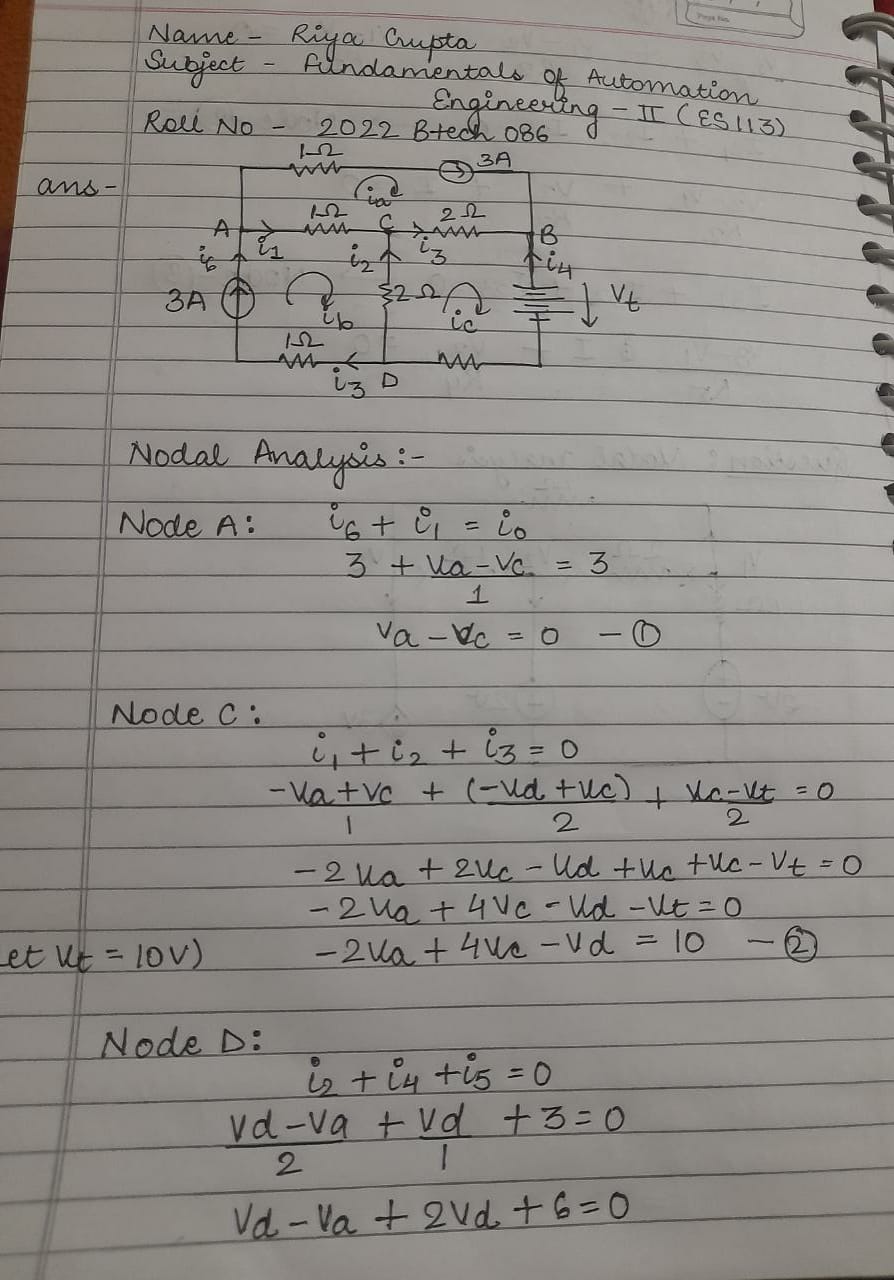 Name - Riya Gupta
Subject - Fundamentals of Automation
Engineering - II (ES113)
Roll No - 2022 Btech 086
ans-
1Ω
3A
ia
A
i1
1Ω
C
i3
2Ω
B
i6
i2
i4
3A
ib
2Ω
ic
Vt
1Ω
i3
D
Nodal Analysis :-
Node A: i6 + i1 = i0
3 + Va-Vc/1 = 3
Va - Vc = 0 - ①
Node C:
i1 + i2 + i3 = 0
-Va+Vc/1 + (-Vd+Vc)/2 + Vc-Vt/2 = 0
-2Va + 2Vc - Vd + Vc + Vc - Vt = 0
-2Va + 4Vc - Vd - Vt = 0
et Vt = 10V) -2Va + 4Vc - Vd = 10 - ②
Node D:
i2 + i4 + i5 = 0
Vd-Va/2 + Vd/1 + 3 = 0
Vd - Va + 2Vd + 6 = 0